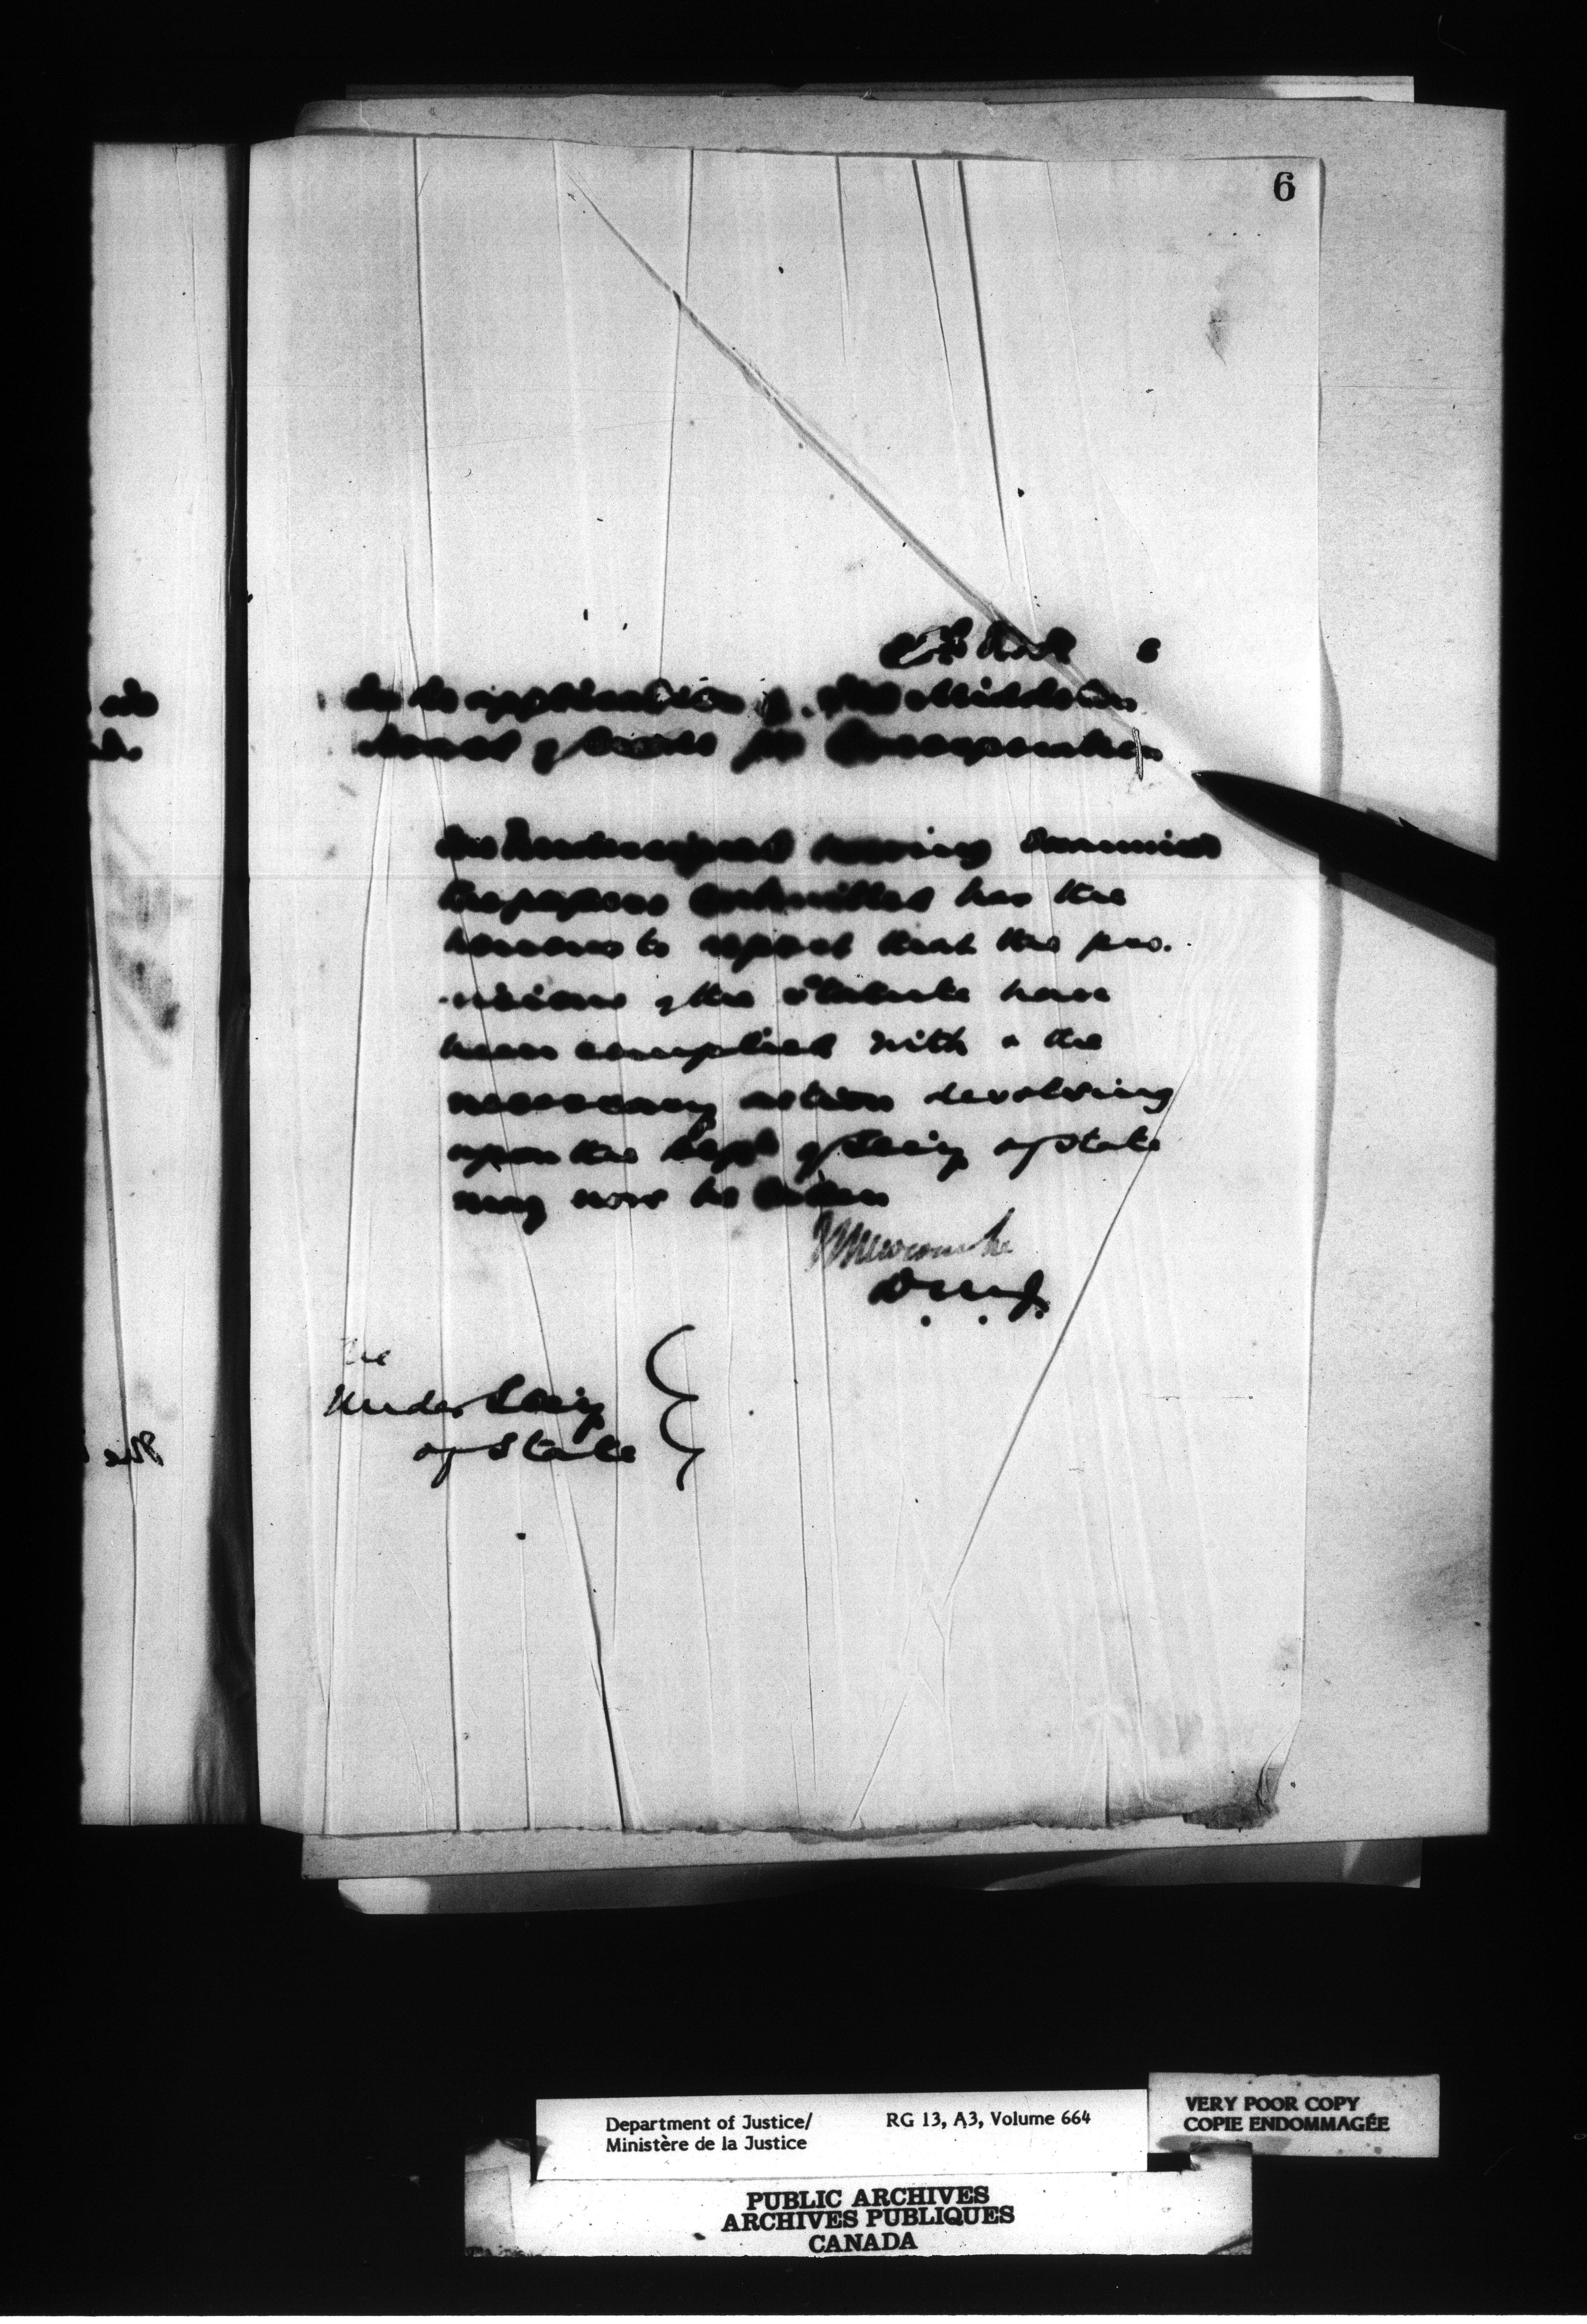 6
In re application of The Middleton
Board of Trade for Incorporation
The Undersigned having Examined
the papers Submitted has the
honour to report that the pro-
-visions of the Statute have
been complied with & the
necessary action devolving
upon the Dept of Sec'y of State
may now be taken
Newcombe
D.M.J.
The
Under Sec'y
of State
Department of Justice/
Ministère de la Justice
RG 13, A3, Volume 664
VERY POOR COPY
COPIE ENDOMMAGÉE
PUBLIC ARCHIVES
ARCHIVES PUBLIQUES
CANADA